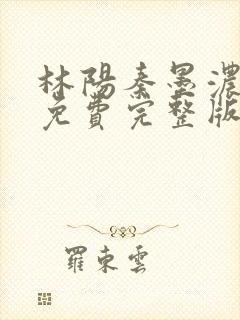 林陽秦墨濃
免費完整版
羅東雲